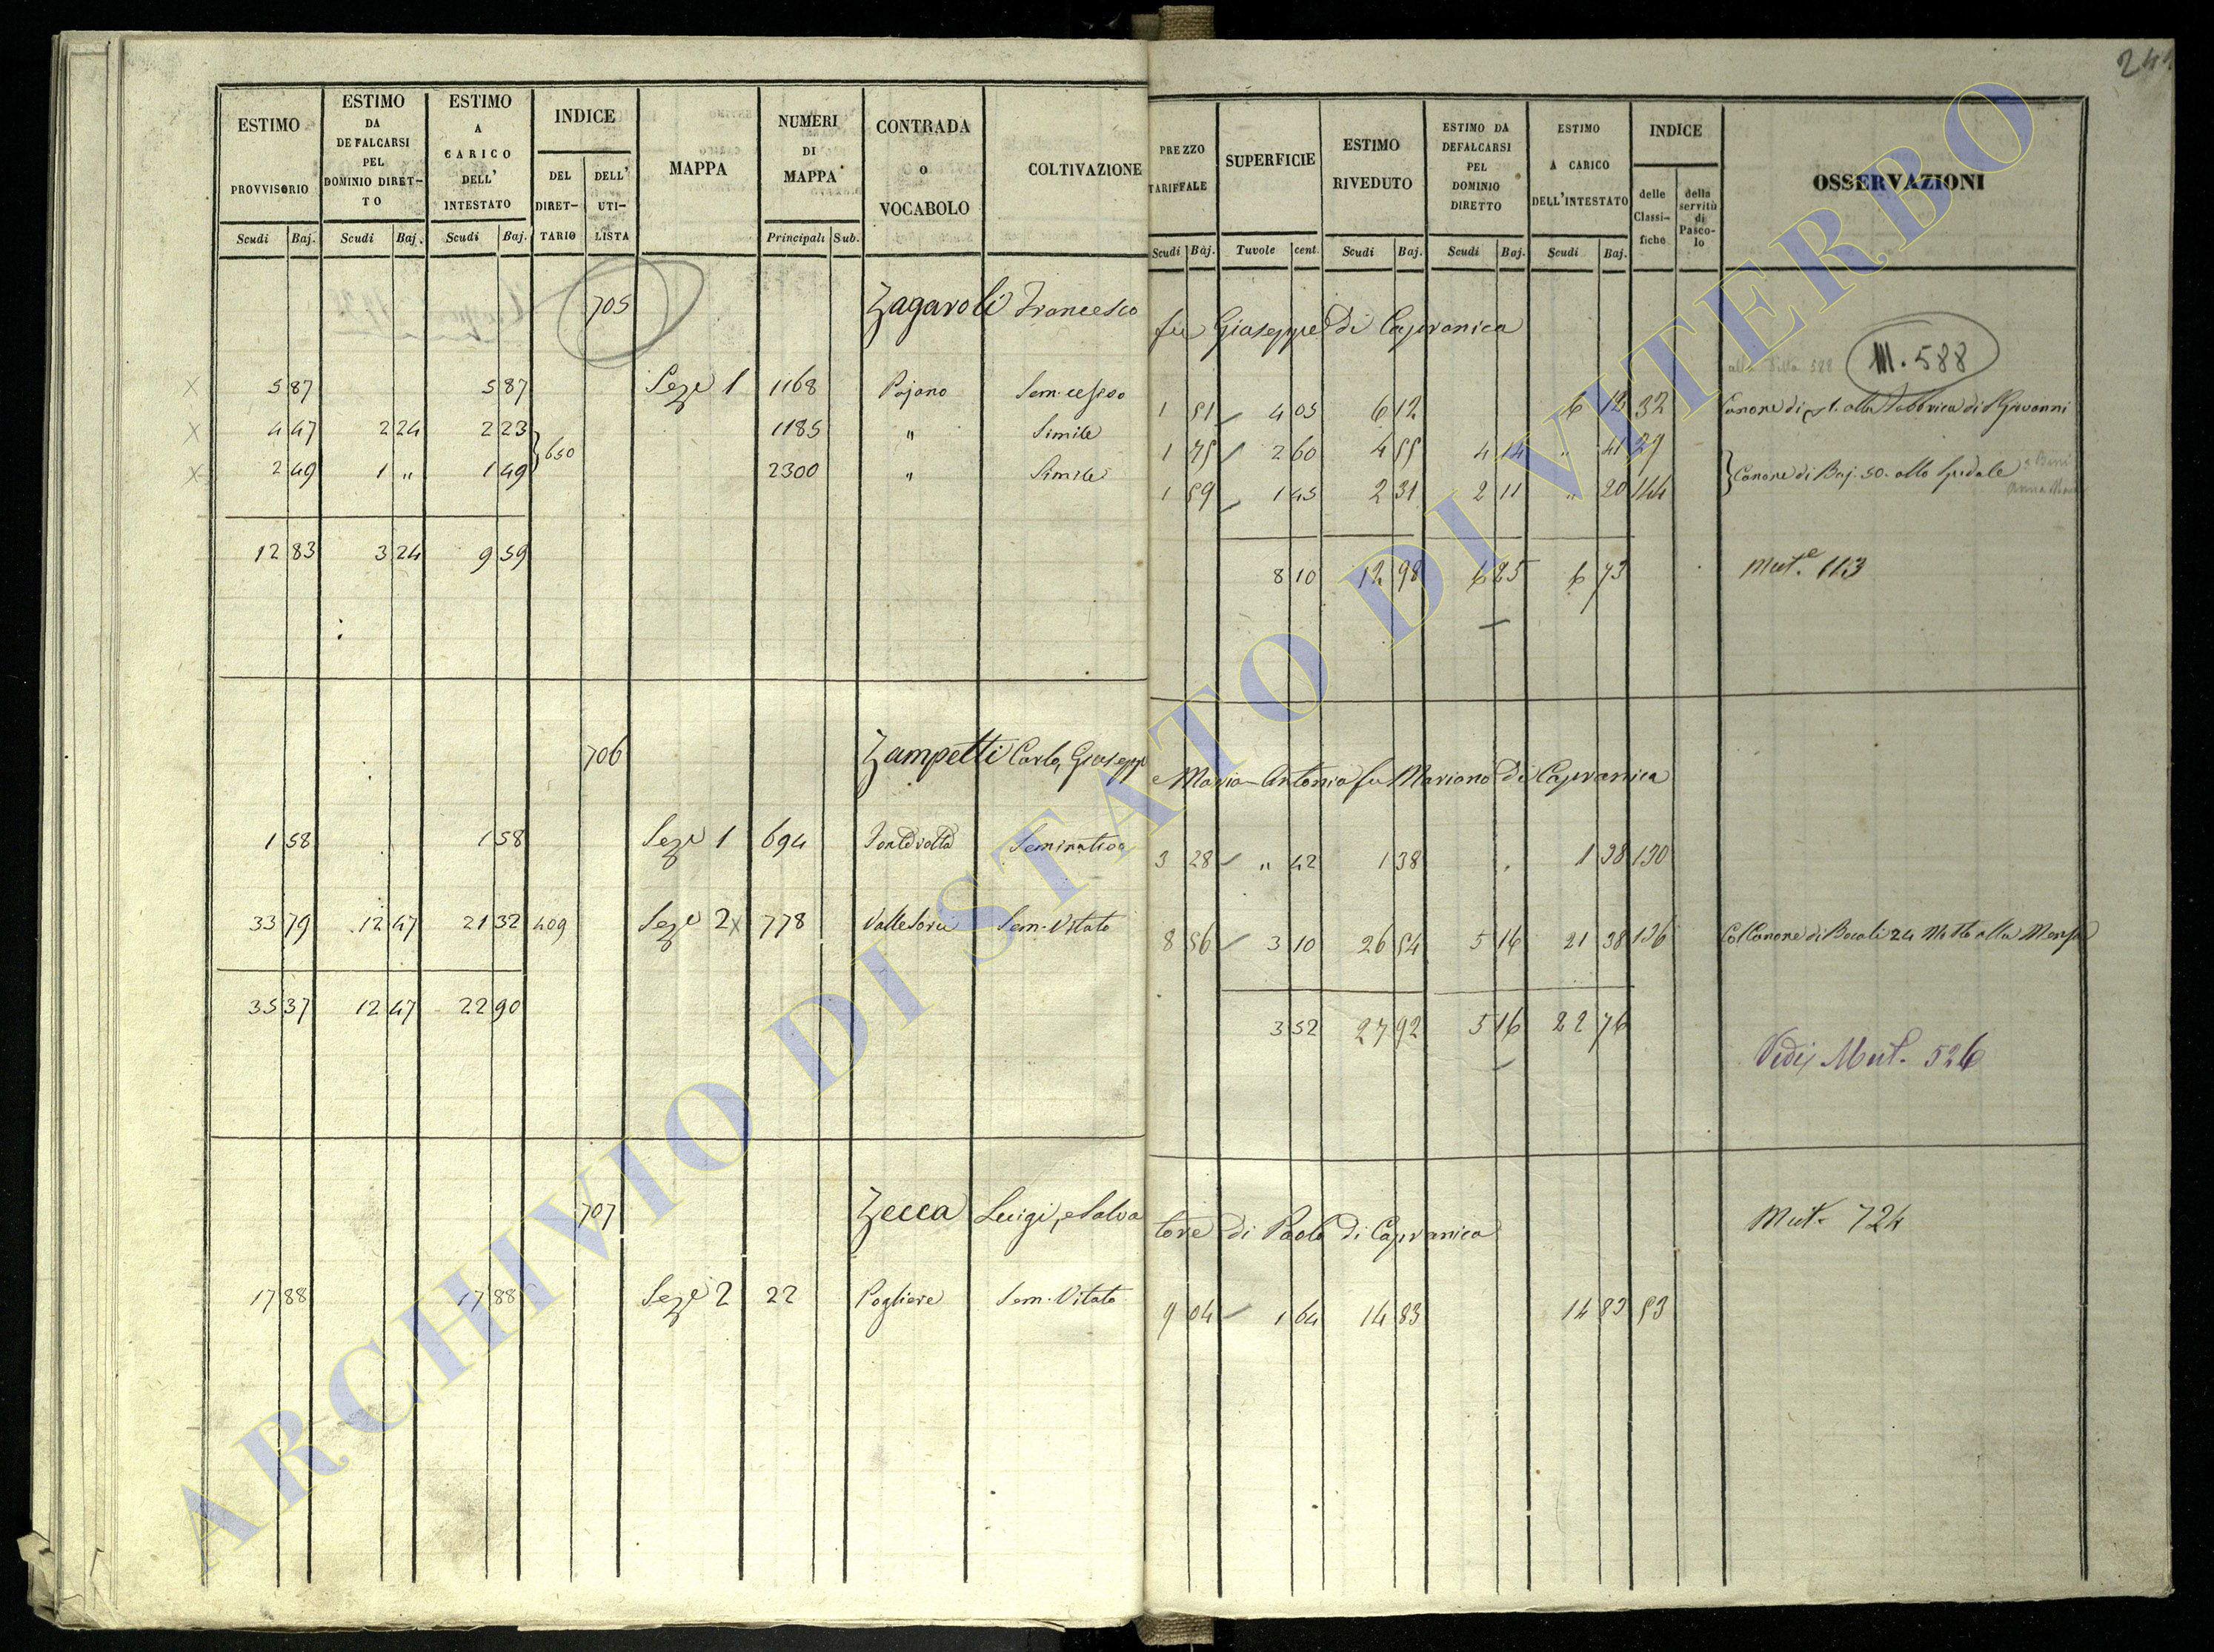 244
ESTIMO PROVVISORIO Scudi Baj.
ESTIMO DA DEFALCARSI PEL DOMINIO DIRETTO Scudi Baj.
ESTIMO A CARICO DELL' INTESTATO Scudi Baj.
INDICE DEL DIRETTARIO DELL' UTILISTA
MAPPA
NUMERI DI MAPPA Principali Sub.
CONTRADA o VOCABOLO
COLTIVAZIONE
PREZZO TARIFFALE Scudi Baj.
SUPERFICIE Tavole cent.
ESTIMO RIVEDUTO Scudi Baj.
ESTIMO DA DEFALCARSI PEL DOMINIO DIRETTO Scudi Baj.
ESTIMO A CARICO DELL'INTESTATO Scudi Baj.
INDICE delle Classifiche della servitù di Pascolo
OSSERVAZIONI
705 Zagaroli Francesco fu Giuseppe di Capranica
M. 588
5 87 5 87 Sez.e 1 1168 Pojano Sem. cesivo 1 51 4 05 6 12 6 12 32 Canone di alla Fabbrica di S Giovanni
4 47 2 24 2 23 650 1185 " Simile 1 75 2 60 4 55 4 14 " 41 29
2 49 1 " 1 49 2300 " Simile 1 59 1 45 2 31 2 11 " 20 144 Canone di Baj. 50. allo Spedale
12 83 3 24 9 59 8 10 12 98 6 25 6 73 Mut.e 113
706 Zampetti Carlo, Giuseppe e Maria Antonia fu Mariano di Capranica
1 58 1 58 Sez.e 1 694 Seminativo 3 28 " 42 1 38 1 38 130
33 79 12 47 21 32 409 Sez.e 2 x 778 Sem. Vitato 8 56 3 10 26 54 5 16 21 38 136 Col Canone di Bocali 24 Mosto alla Mensa
35 37 12 47 22 90 3 52 27 92 5 16 22 76
Vedi Mut. 526
707 Zecca Luigi, e Salvatore di Paolo di Capranica Mut. 724
17 88 17 88 Sez.e 2 22 Pogliere Sem. Vitato 9 04 1 64 14 83 14 83 53
ARCHIVIO DI STATO DI VITERBO